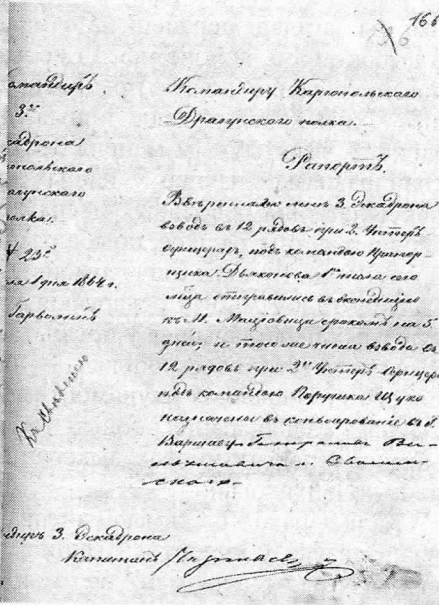 166
136
Командиръ
3го
эскадрона
Каргопольскаго
Драгунскаго
полка.
№ 23й
1 дня 1864 г.
Гарволинъ
Командиру Каргопольскаго
Драгунскаго полка.
Рапортъ.
Ввѣреннаго мнѣ 3. Эскадрона
взводъ въ 12 рядовъ при 2. Унтеръ
Офицерахъ, подъ командою Прапор-
щика Дьяконова 1го числа сего
м-ца отправились въ экспедицію
къ М. Маціовица срокомъ на 5
дней; и того же числа взводъ въ
12 рядовъ при 2хъ Унтеръ Офицерахъ
подъ командою Поручика Щуко
назначены въ конвоированіе въ г.
Варшаву
Къ свѣдѣнію
Командиръ 3. Эскадрона
Капитанъ